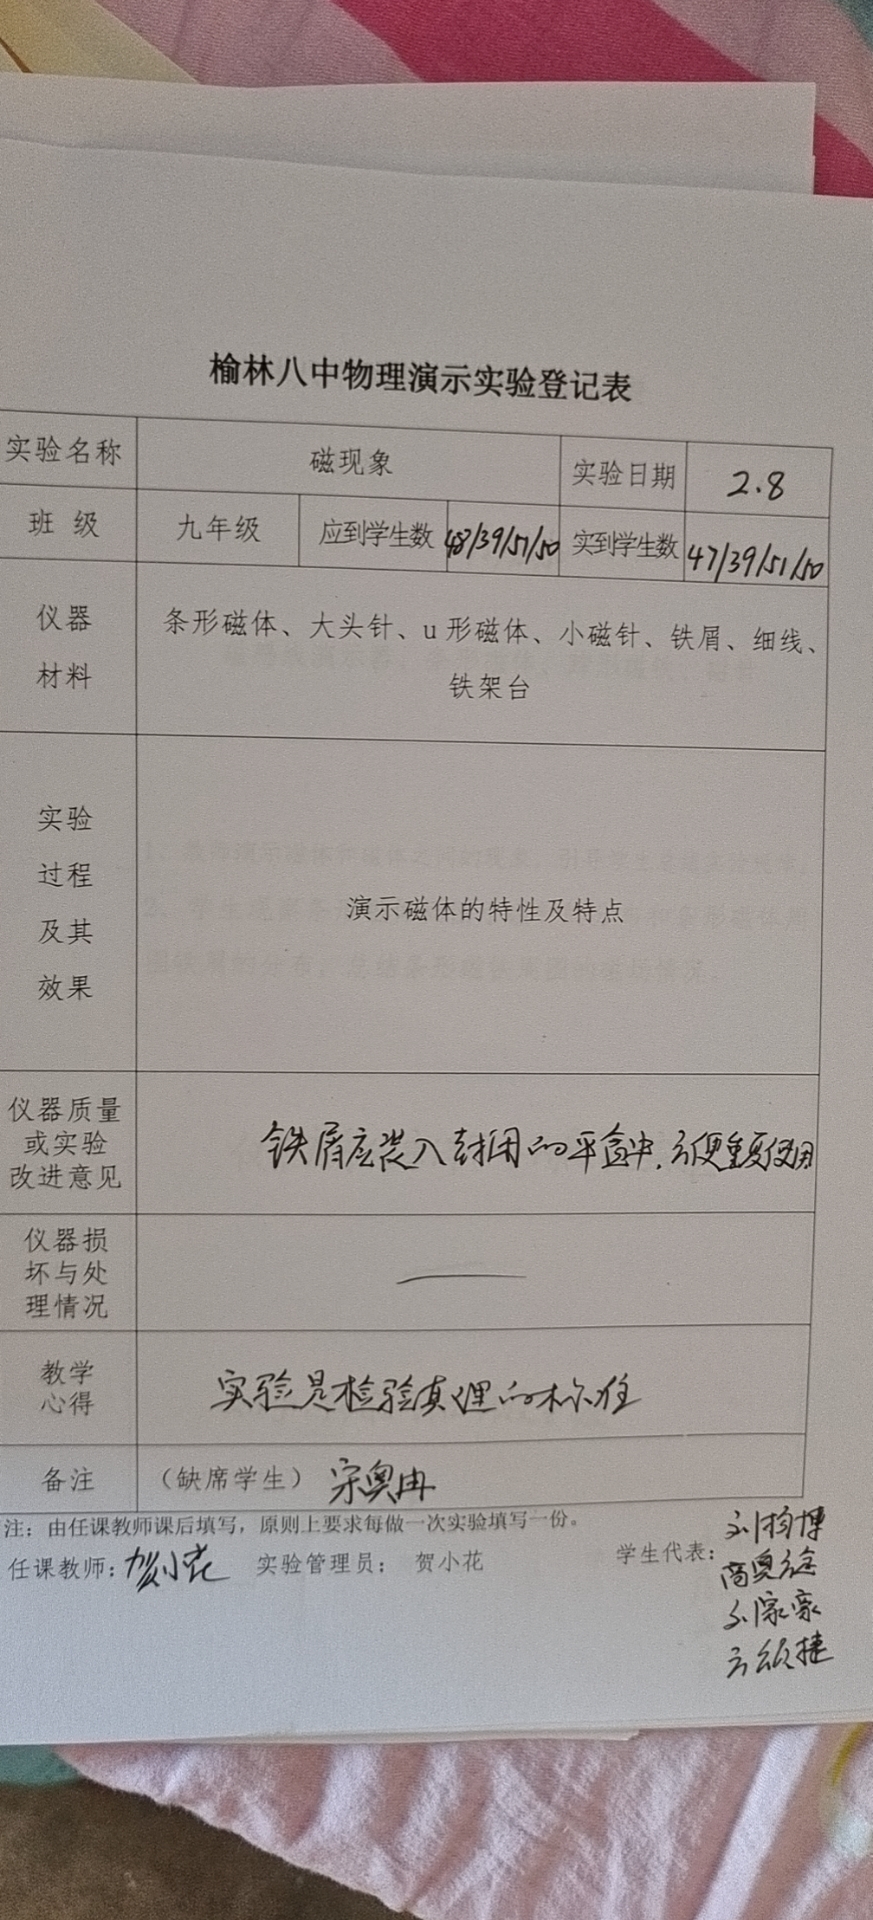 榆林八中物理演示实验登记表
实验名称 磁现象 实验日期 2.8
班 级 九年级 应到学生数 48/39/51/50 实到学生数 47/39/51/50
仪器
材料
条形磁体、大头针、u 形磁体、小磁针、铁屑、细线、
铁架台
实验
过程
及其
效果
演示磁体的特性及特点
仪器质量
或实验
改进意见
铁屑应装入封闭的平盒中,方便重复使用
仪器损
坏与处
理情况
——
教学
心得
实验是检验真理的标准
备注 （缺席学生） 宋奥冉
注：由任课教师课后填写，原则上要求每做一次实验填写一份。
任课教师：贺小花 实验管理员： 贺小花 学生代表：